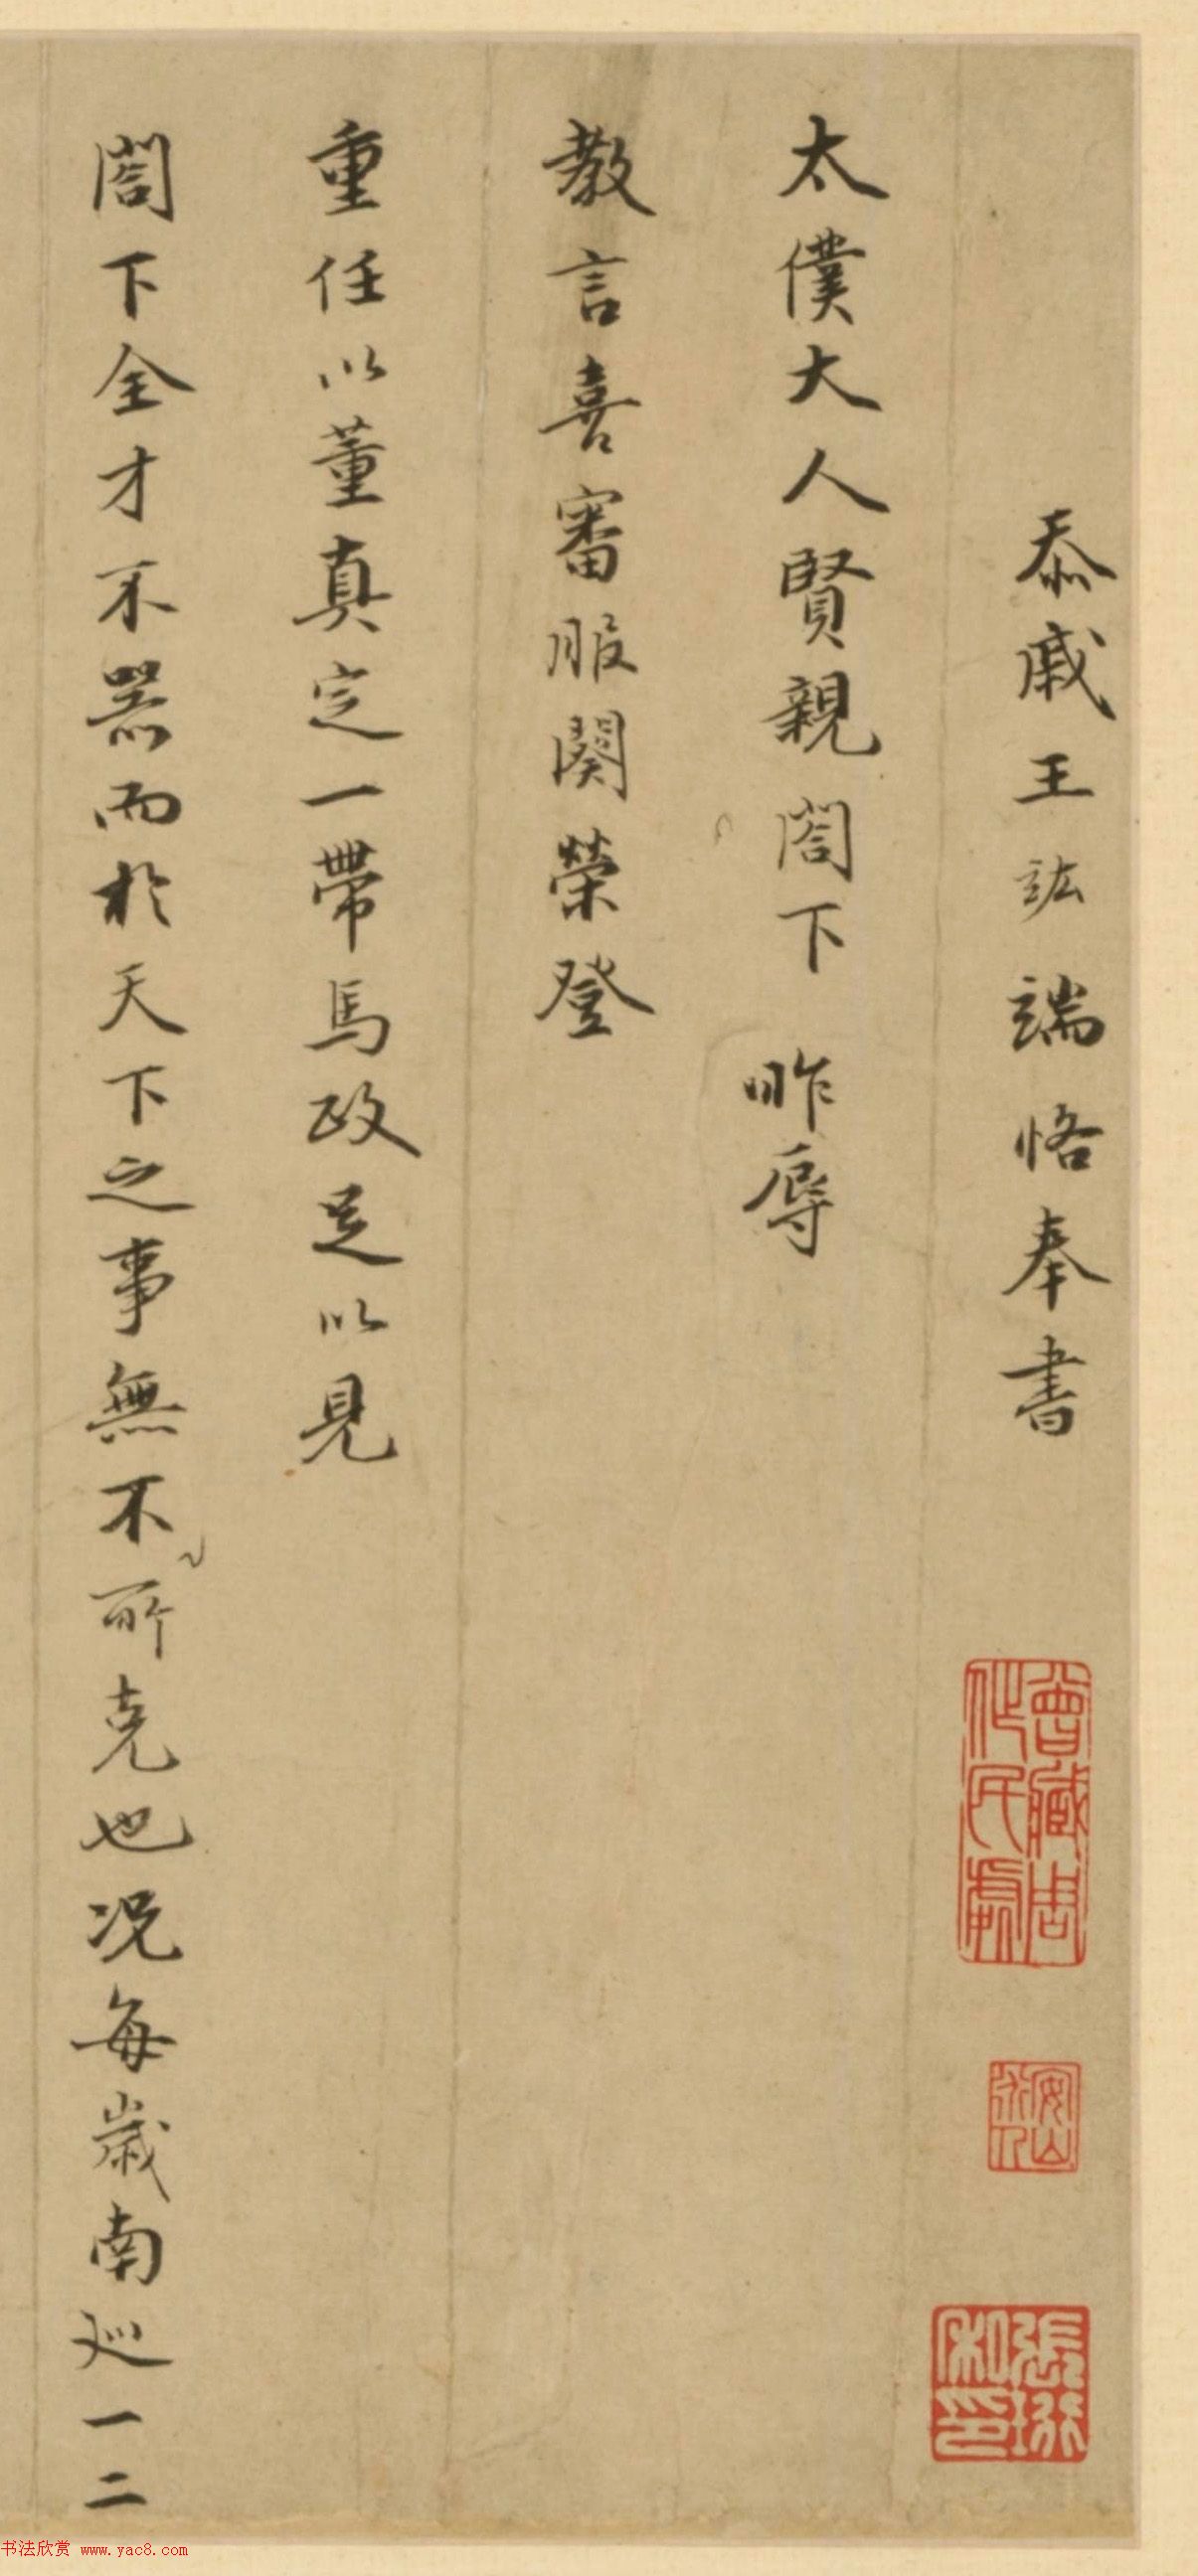 忝戚王竑端恪奉書
太僕大人賢親閤下 昨辱
教言喜審服闋榮登
重任以董真定一帶馬政足以見
閤下全才不器而於天下之事無不所克也况每歲南巡一二
曾藏周作民處
張珩私印
书法欣赏 www.yac8.com